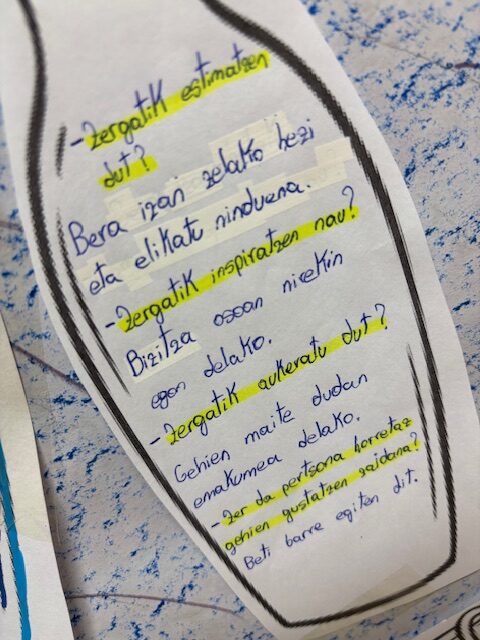 - Zergatik estimatzen
dut?
Bera izan zelako hezi
eta elikatu ninduena.
- Zergatik inspiratzen nau?
Bizitza osoan nirekin
egon delako.
- Zergatik aukeratu dut?
Gehien maite dudan
emakumea delako.
- Zer da pertsona horretaz
gehien gustatzen zaidana?
Beti barre egiten dit.